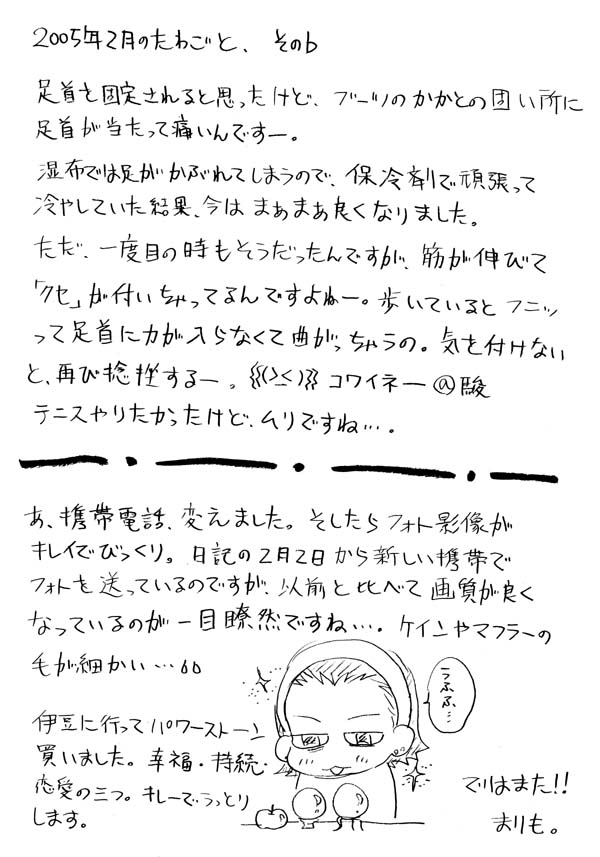 2005年2月のたわごと、その6
足首を固定されると思ったけど、ブーツのかかとの固い所に
足首が当たって痛いんですー。
湿布では足がかぶれてしまうので、保冷剤で頑張って
冷やしていた結果、今はまあまあ良くなりました。
ただ、一度目の時もそうだったんですが、筋が伸びて
「クセ」が付いちゃってるんですよねー。歩いているとフニッ
って足首に力が入らなくて曲がっちゃうの。気を付けない
と、再び捻挫するー。{{{(>_<)}}} コワイネー@駿
テニスやりたかったけど、ムリですね…。
あ、携帯電話、変えました。そしたらフォト影像が
キレイでびっくり。日記の2月2日から新しい携帯で
フォトを送っているのですが、以前と比べて画質が良く
なっているのが一目瞭然ですね…。ケインやマフラーの
毛が細かい…。
うふふ…
伊豆に行ってパワーストーン
買いました。幸福・持続・
恋愛の三つ。キレーでうっとり
します。
でりはまた!!
まりも。